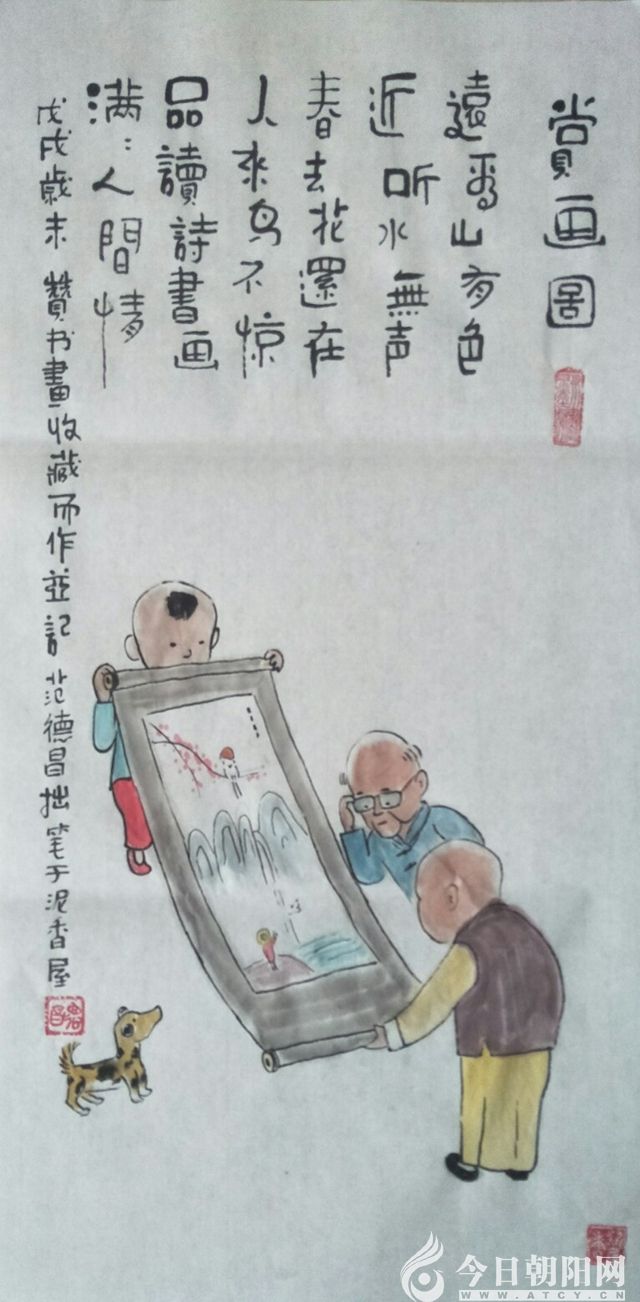 賞画图
遠看山有色
近听水無声
春去花還在
人來鸟不惊
品讀詩書画
满:人間情
戊戌歲末 贊书畫收藏而作並記 范德昌拙笔于泥香屋
今日朝阳网
WWW.ATCY.CN